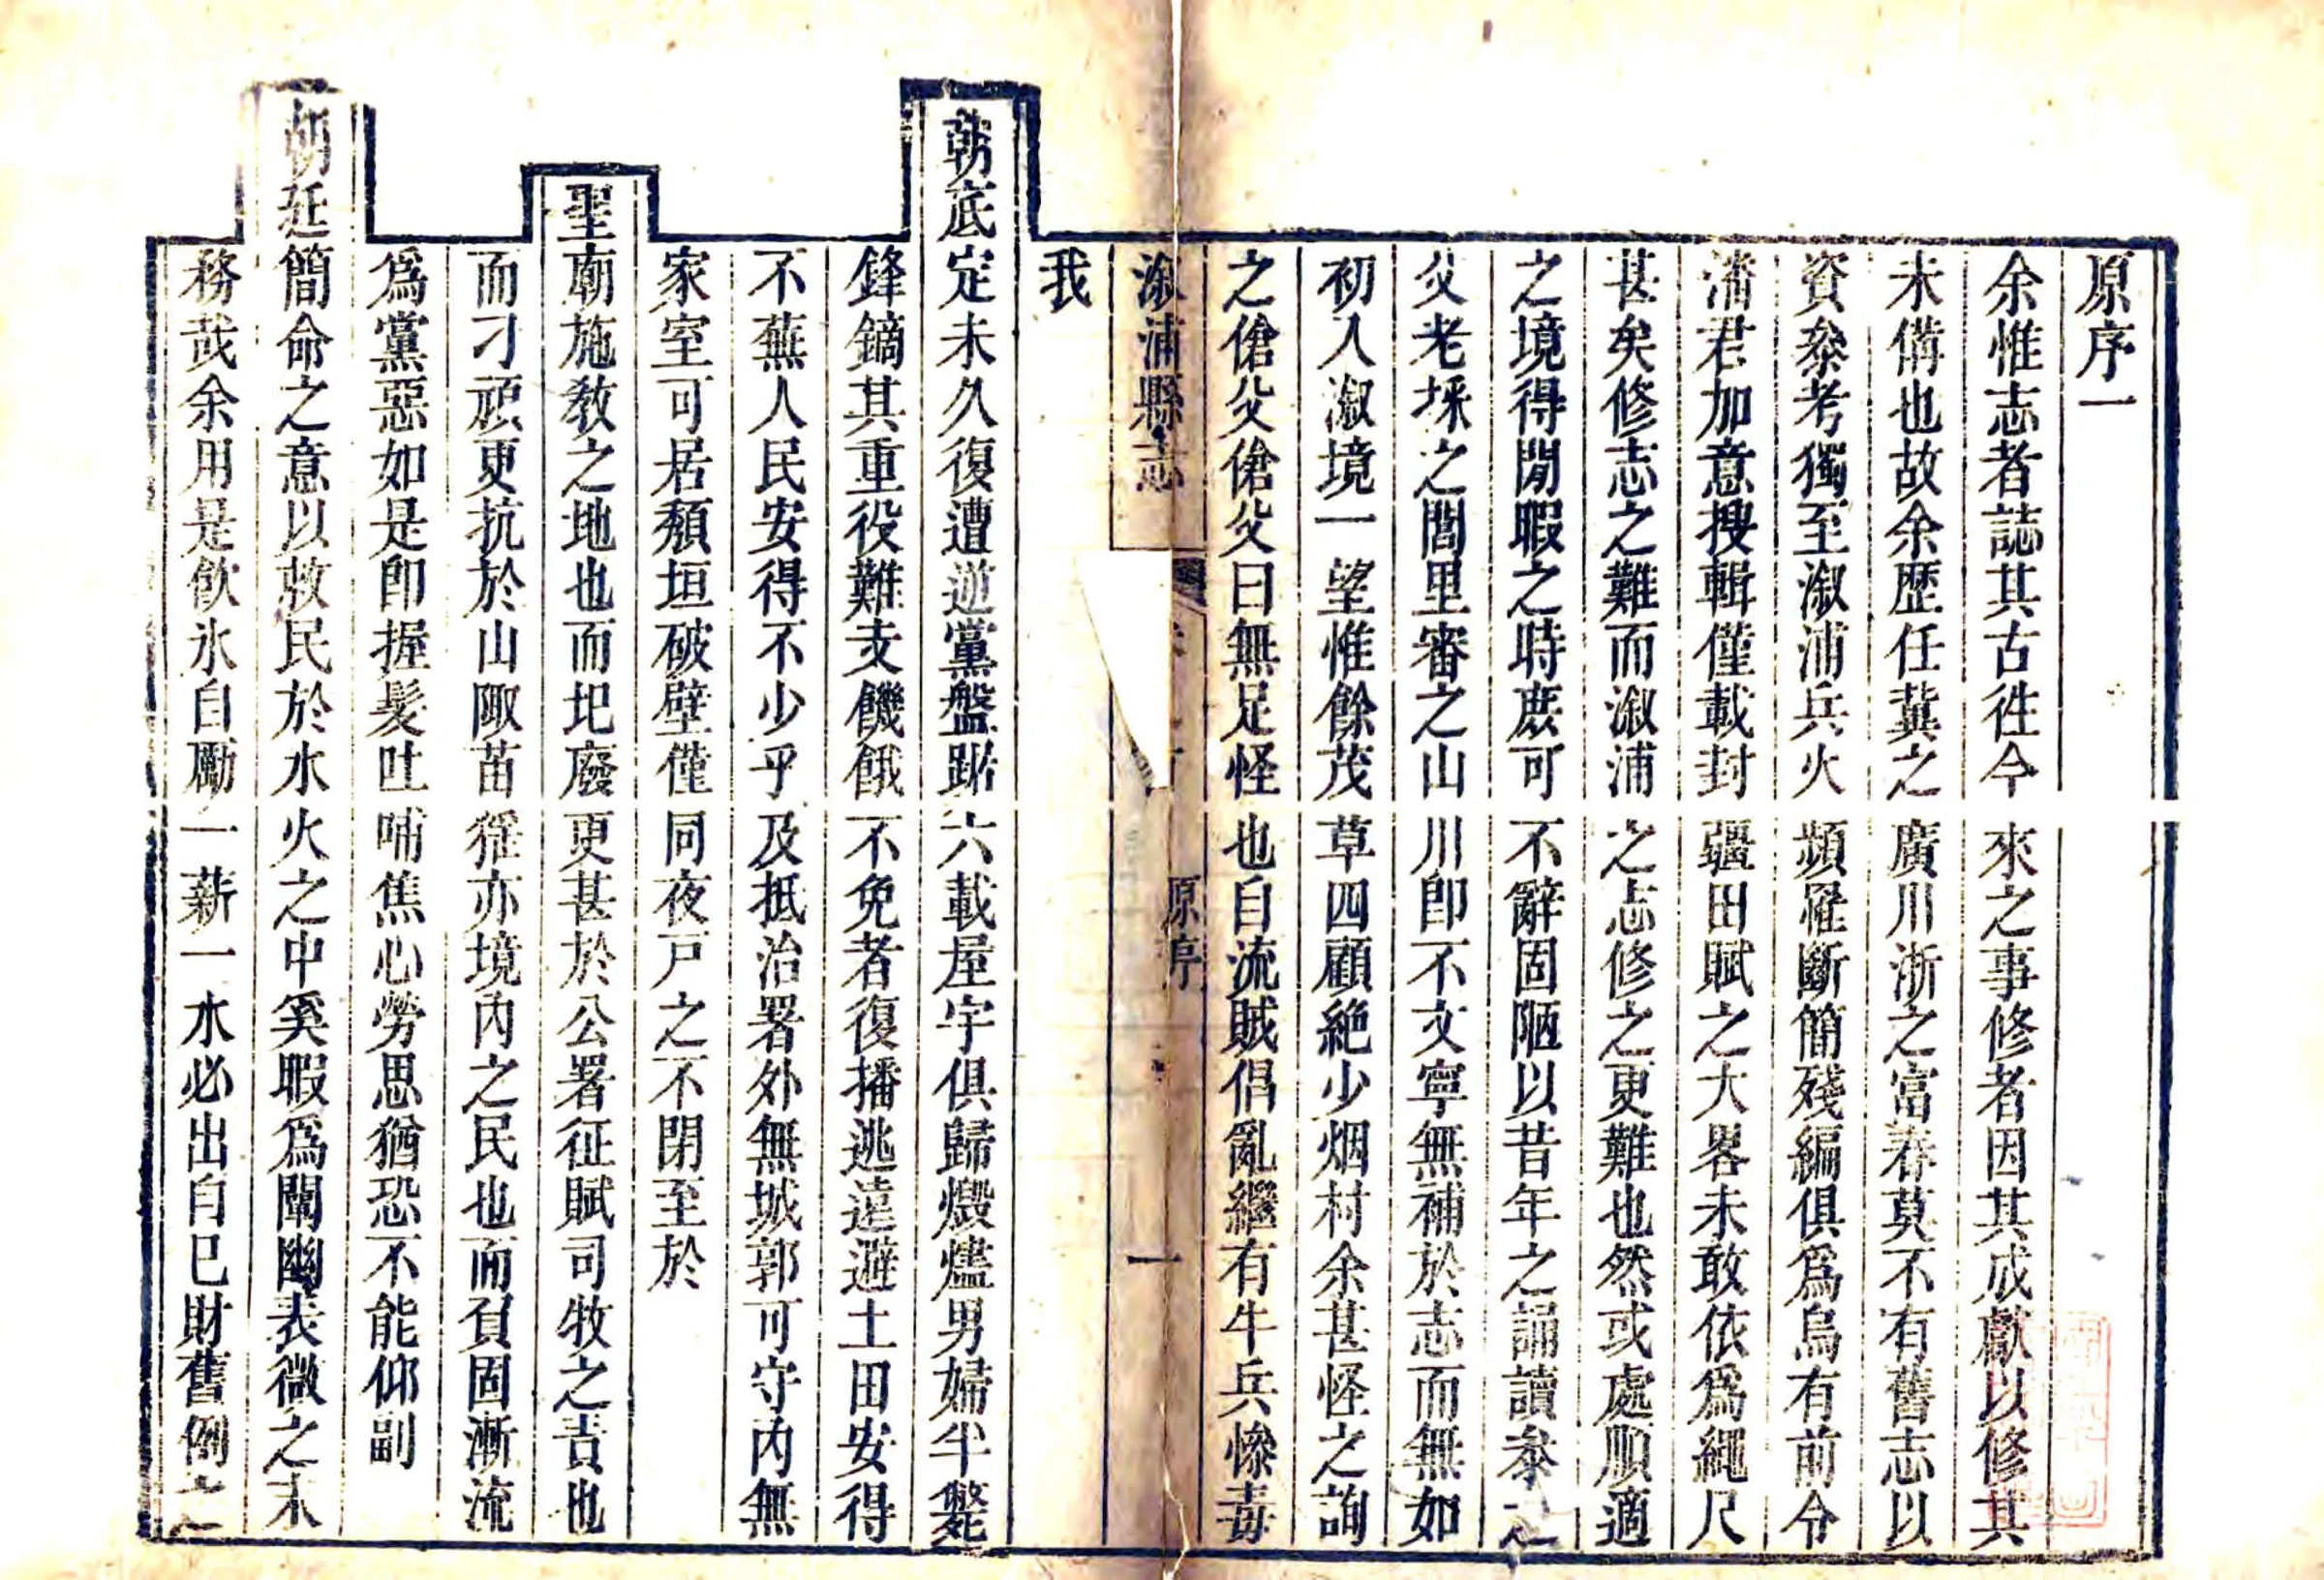 原序一
余惟志者誌其古徃今來之事修者因其成獻以修其
未備也故余歷任冀之廣川浙之富春莫不有舊志以
資叅考獨至溆浦兵火頻罹斷簡殘編俱爲烏有前令
潘君加意搜輯僅載封疆田賦之大畧未敢依爲繩尺
甚矣修志之難而溆浦之志修之更難也然或處順適
之境得閒暇之時庶可不辭固陋以昔年之誦讀叅之
父老採之閭里審之山川卽不文寧無補於志而無如
初入溆境一望惟餘茂草四顧絶少烟村余甚怪之詢
之傖父傖父曰無足怪也自流賊倡亂繼有牛兵慘毒
溆浦縣志
原序
一
我
朝底定未久復遭逆黨盤踞六載屋宇俱歸燬燼男婦半斃
鋒鏑其重役難支饑餓不免者復播逃遠避土田安得
不蕪人民安得不少乎及抵治署外無城郭可守内無
家室可居頽垣破壁僅同夜戸之不閉至於
聖廟施教之地也而圯廢更甚於公署征賦司牧之責也
而刁頑更抗於山陬苗猺亦境内之民也而負固漸流
爲黨惡如是卽握髪吐哺焦心勞思猶恐不能仰副
朝廷簡命之意以救民於水火之中奚暇爲闡幽表微之末
務哉余用是飲氷自勵一薪一水必出自己財舊例之